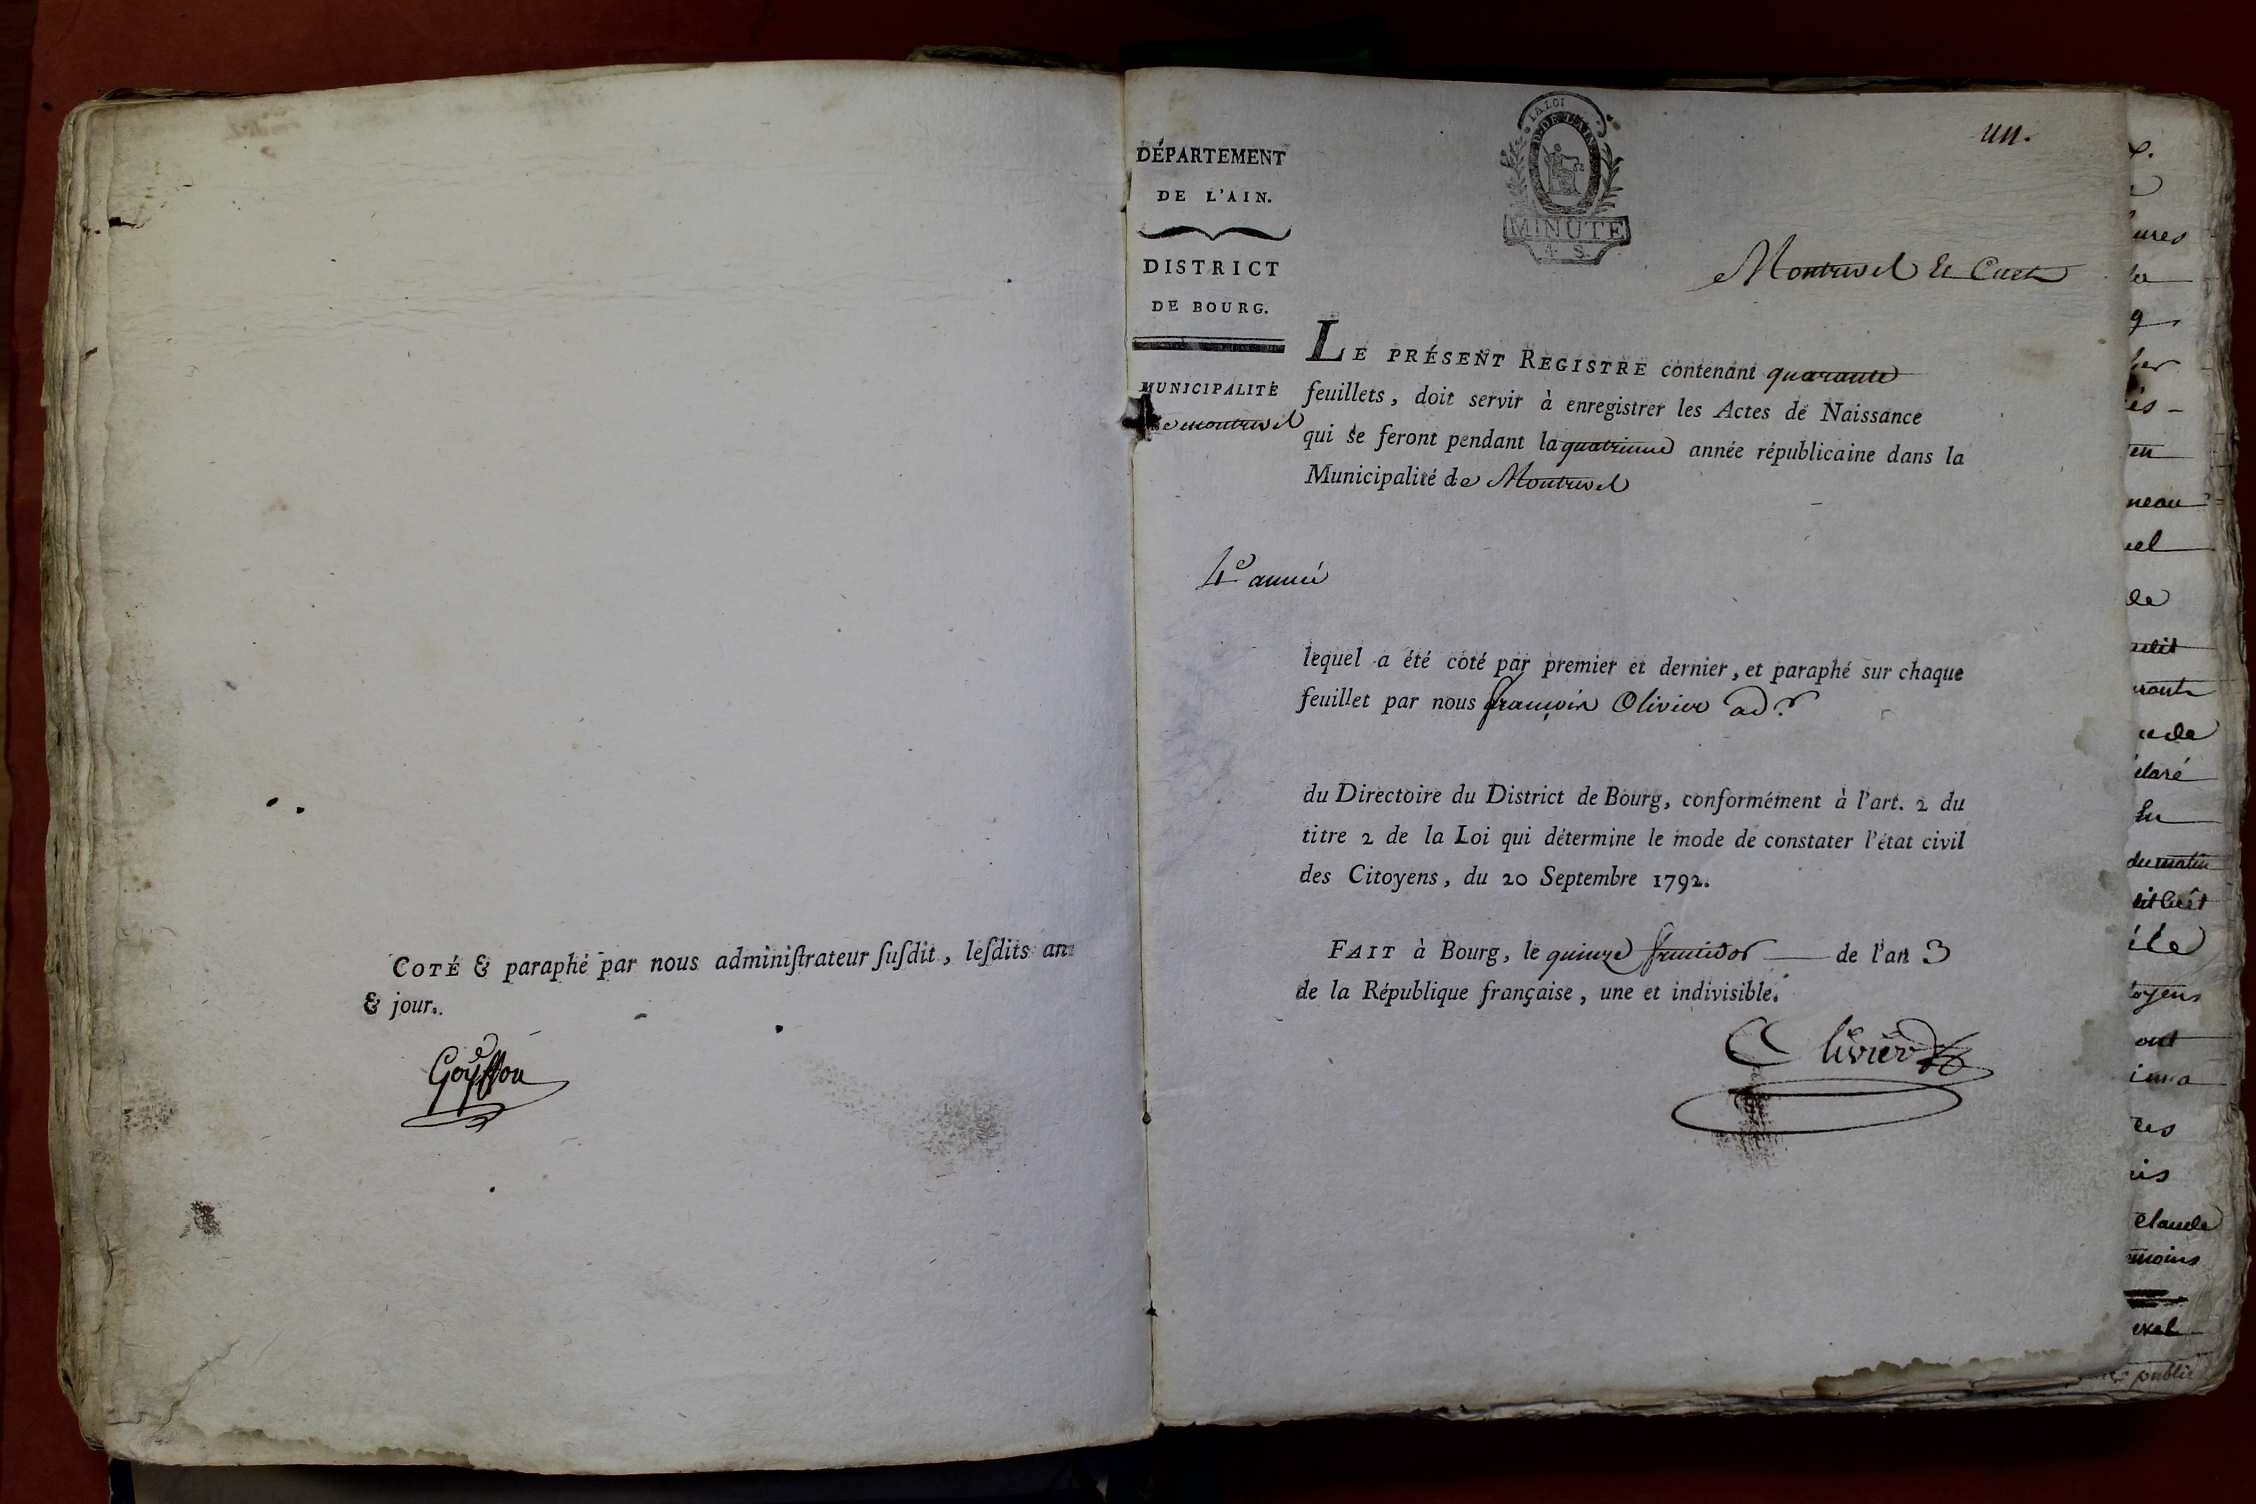 COTÉ & paraphé par nous adminiſtrateur ſuſdit, leſdits an
& jour.
Goyffon
un.
LA LOI
MINUTE
4 S.
DÉPARTEMENT
DE L'AIN.
DISTRICT
DE BOURG.
MUNICIPALITÉ
de montrevel
Montrevel Et Cuet
LE PRÉSENT REGISTRE contenant quarante
feuillets, doit servir à enregistrer les Actes de Naissance
qui se feront pendant la quatrieme année républicaine dans la
Municipalité de Montrevel
4e année
lequel a été coté par premier et dernier, et paraphé sur chaque
feuillet par nous françois Olivier adr
du Directoire du District de Bourg, conformément à l'art. 2 du
titre 2 de la Loi qui détermine le mode de constater l'état civil
des Citoyens, du 20 Septembre 1792.
FAIT à Bourg, le quinze fructidor de l'an 3
de la République française, une et indivisible.
Olivier
ures
la
neau
vel
de
claré
du matin
dit Cuêt
toyens
ont
ces
Claude
moins
public